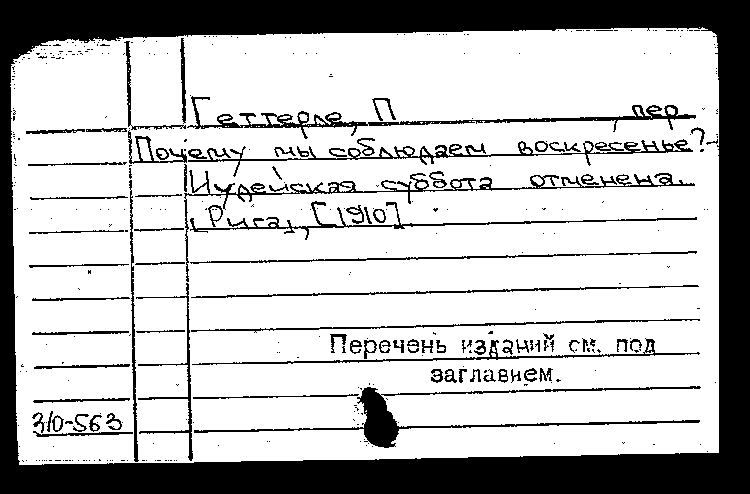 Геттерле, П , пер.
Почему мы соблюдаем воскресенье? -
Иудейская суббота отменена.
[Рига], [1910].
Перечень изданий см. под
заглавием.
310-563